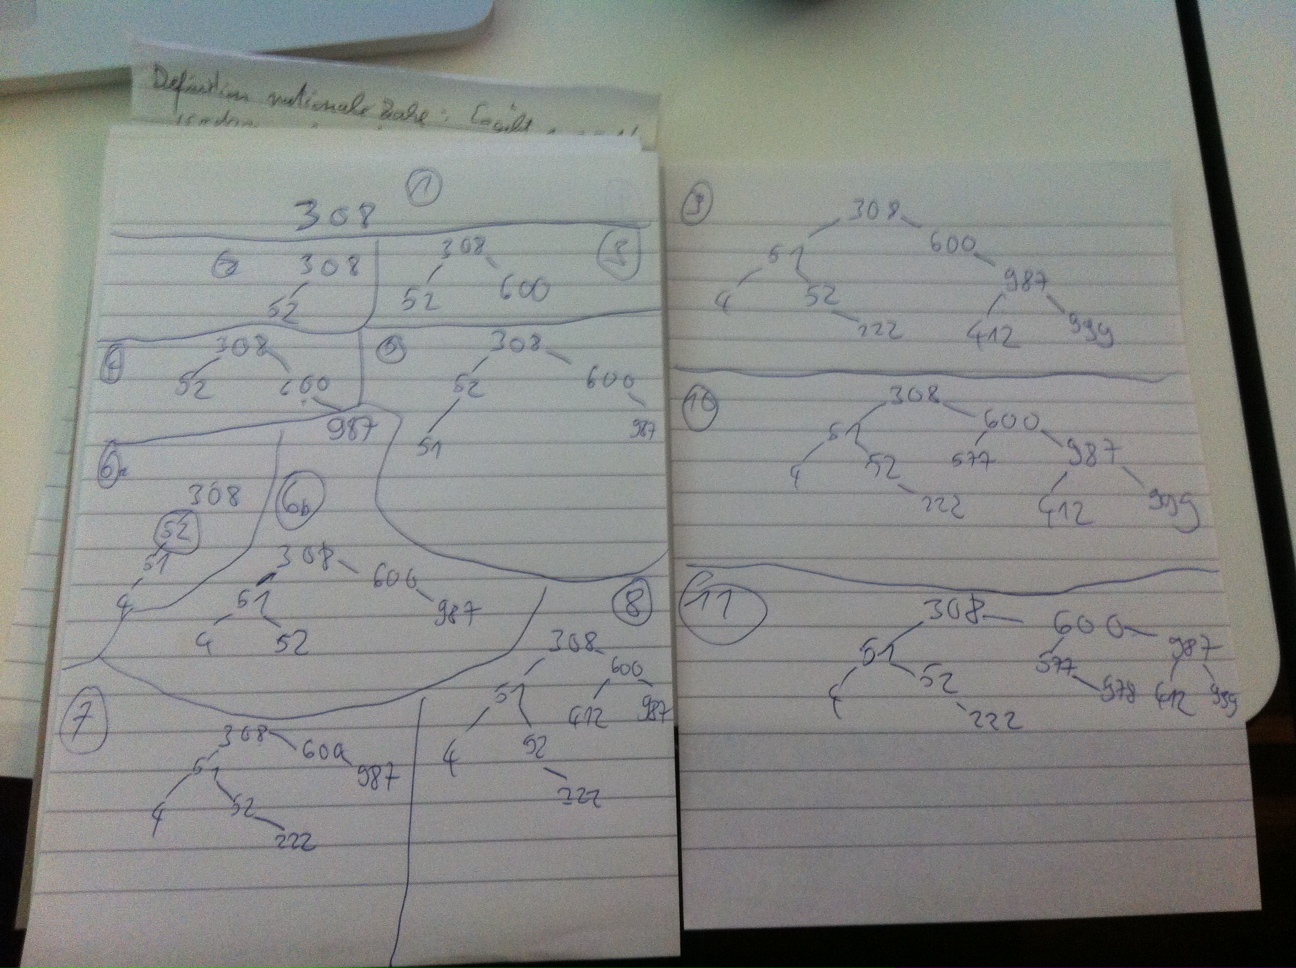 Definition rationale Zahl: Es gibt
①
308
② 308
52
③ 308
52 600
④ 308
52 600
987
⑤ 308
52 600
51 987
6a
308
52
51
4
6b
308
51 600
4 52 987
⑦
308 600
51 987
4 52
222
⑧
308
51 600
412 987
4 52
222
⑨ 308
51 600
4 52 987
222 412 999
⑩ 308
51 600
4 52 577 987
222 412 999
⑪ 308 600
51 577 987
4 52 578 412 999
222